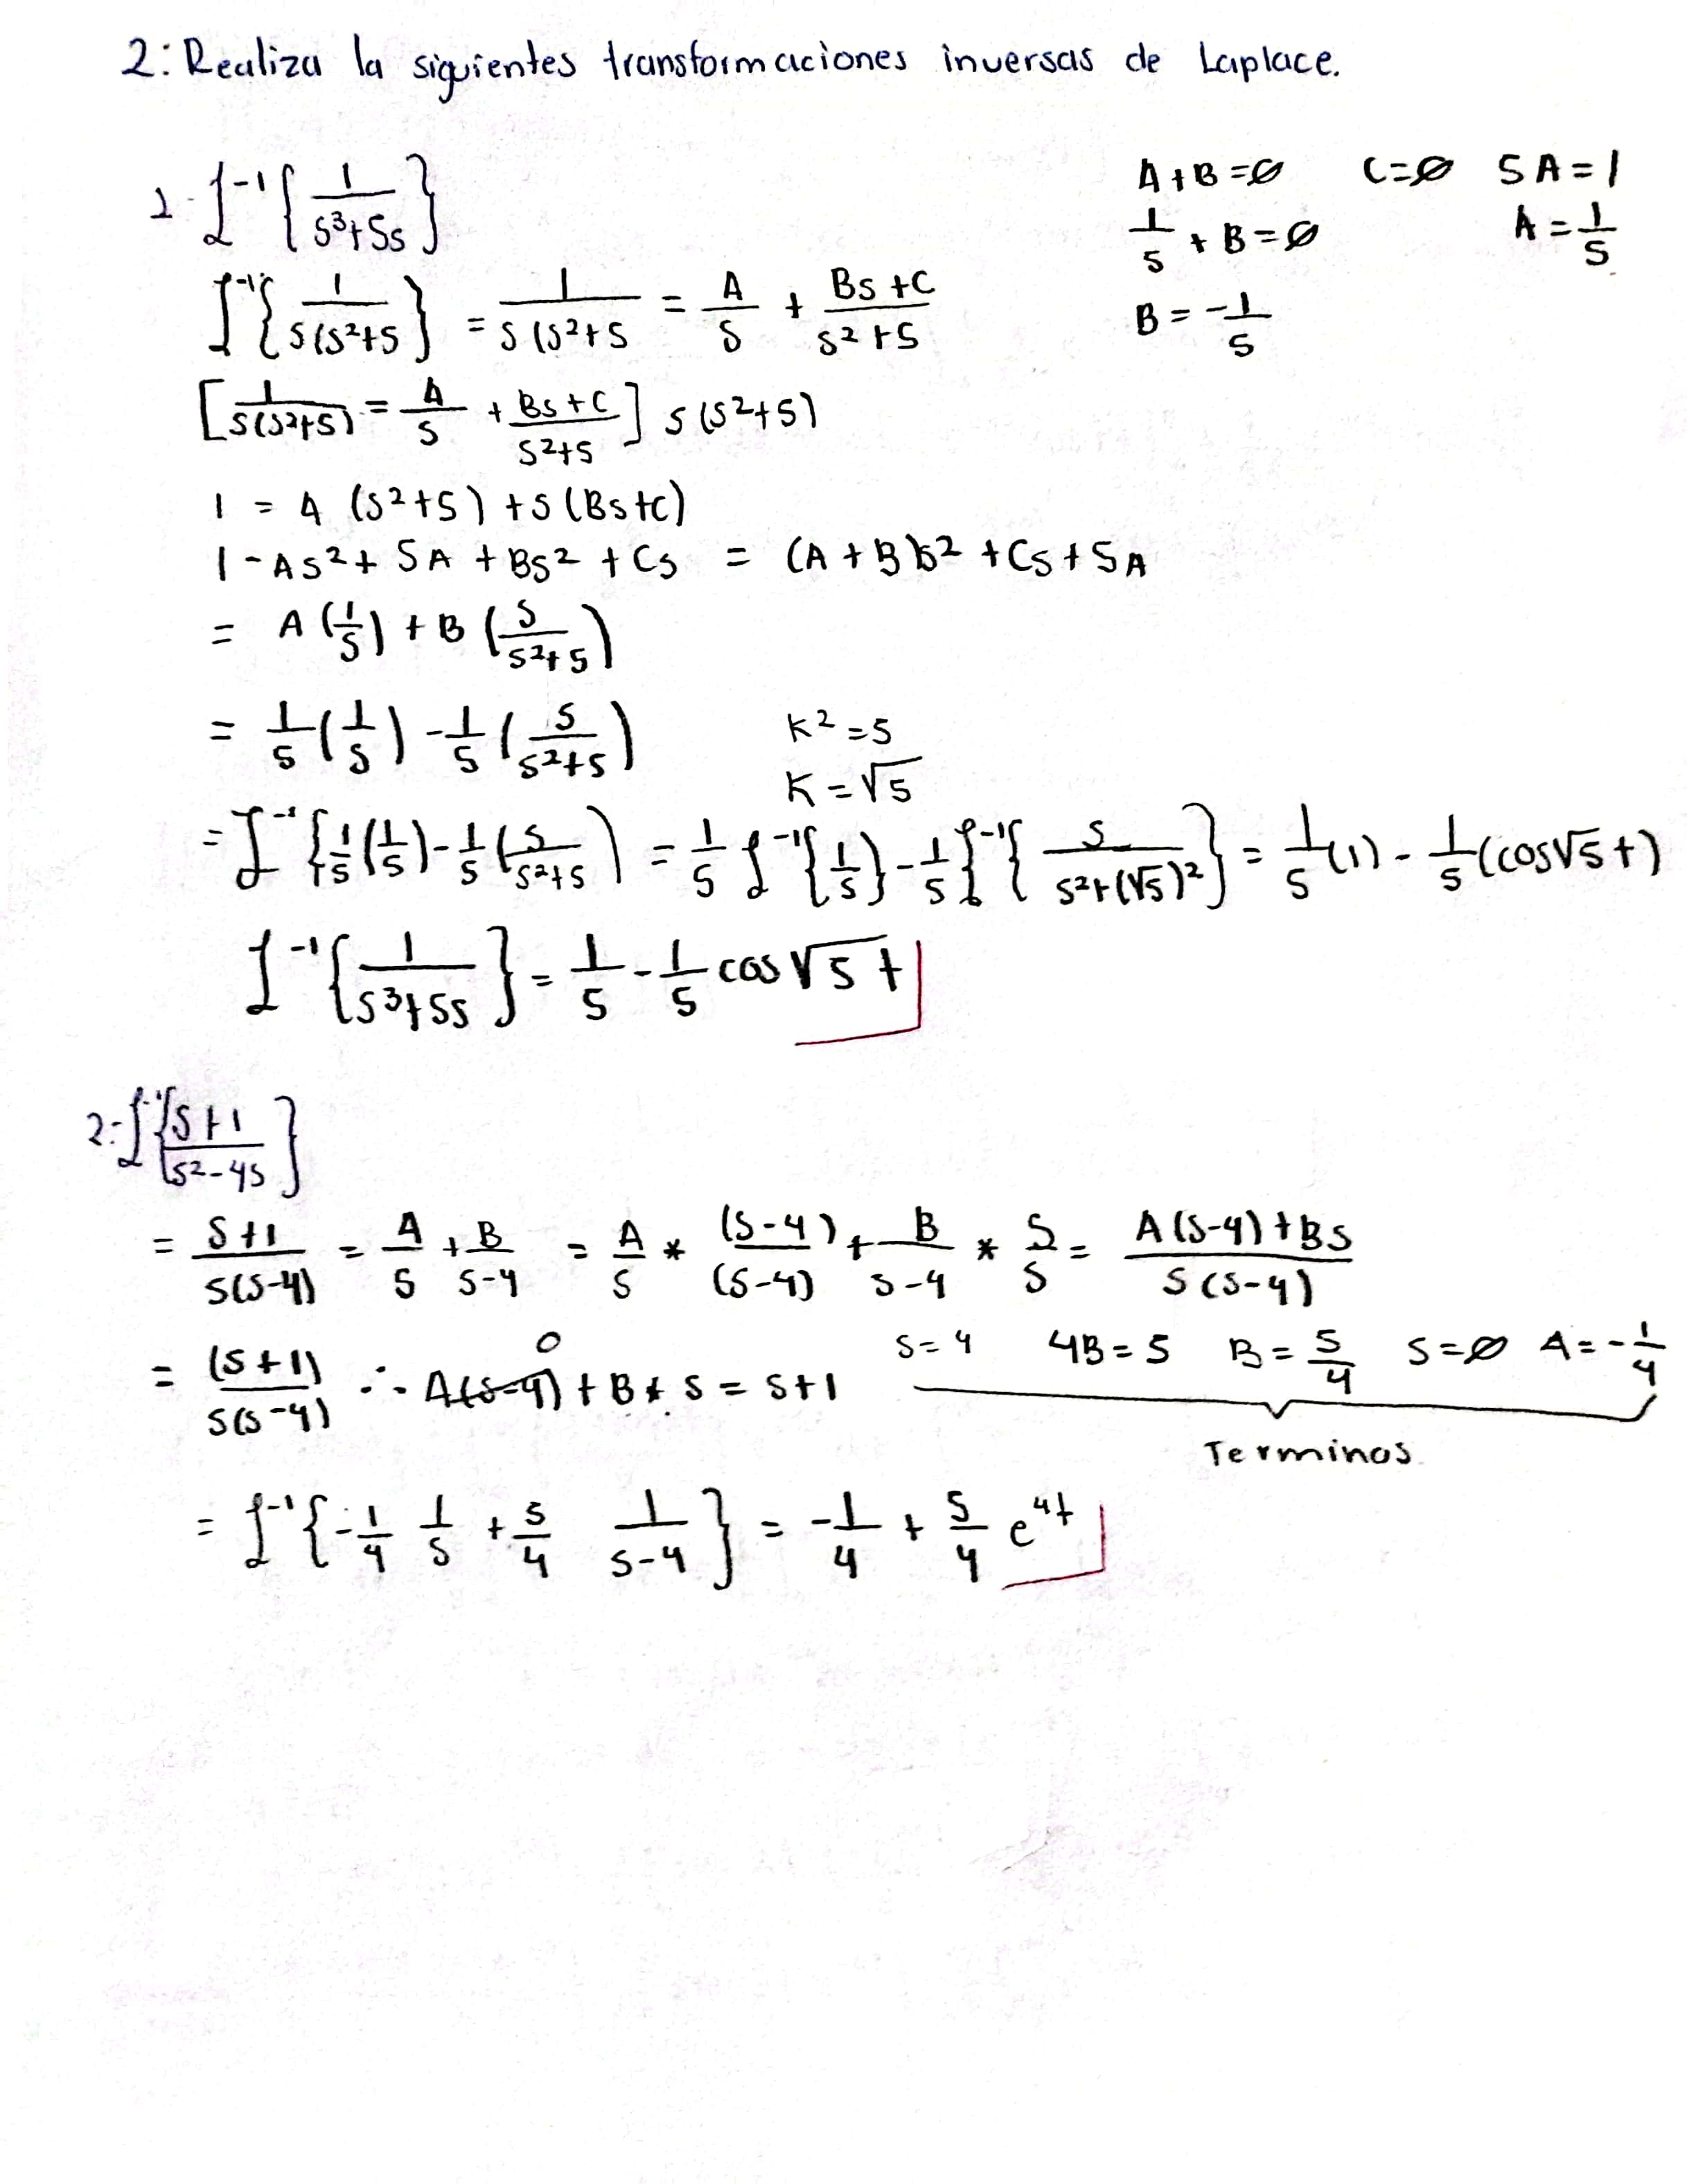 2: Realiza la siguientes transformaciones inversas de Laplace.
1. ℒ⁻¹{ 1/(s³+5s) }
A+B=∅   C=∅   5A=1
1/5 + B=∅   A=1/5
B=-1/5
ℒ⁻¹{ 1/(s(s²+5) } = 1/(s(s²+5) = A/s + (Bs+C)/(s²+5)
[ 1/(s(s²+5)) = A/s + (Bs+C)/(s²+5) ] s(s²+5)
1 = A (s²+5) + s(Bs+C)
1 - As² + 5A + Bs² + Cs = (A+B)s² + Cs + 5A
= A(1/s) + B(s/(s²+5))
= 1/5(1/s) - 1/5(s/(s²+5))
K²=5
K=√5
= ℒ⁻¹{ 1/5(1/s) - 1/5(s/(s²+5)) = 1/5 ℒ⁻¹{1/s} - 1/5 ℒ⁻¹{ s/(s²+(√5)²) } = 1/5(1) - 1/5(cos√5t)
ℒ⁻¹{ 1/(s³+5s) } = 1/5 - 1/5 cos√5 t
2: ℒ⁻¹{ (s+1)/(s²-4s) }
= (s+1)/(s(s-4)) = A/s + B/(s-4) = A/s * (s-4)/(s-4) + B/(s-4) * s/s = (A(s-4)+Bs)/(s(s-4))
= (s+1)/(s(s-4)) ∴ A(s-4) 0 + B * s = s+1   s=4   4B=5   B=5/4   s=∅   A=-1/4
Terminos
= ℒ⁻¹{ -1/4 1/s + 5/4 1/(s-4) } = -1/4 + 5/4 e⁴ᵗ